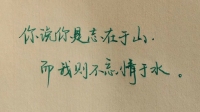 你说你是志在于山.
而我则不忘情于水。